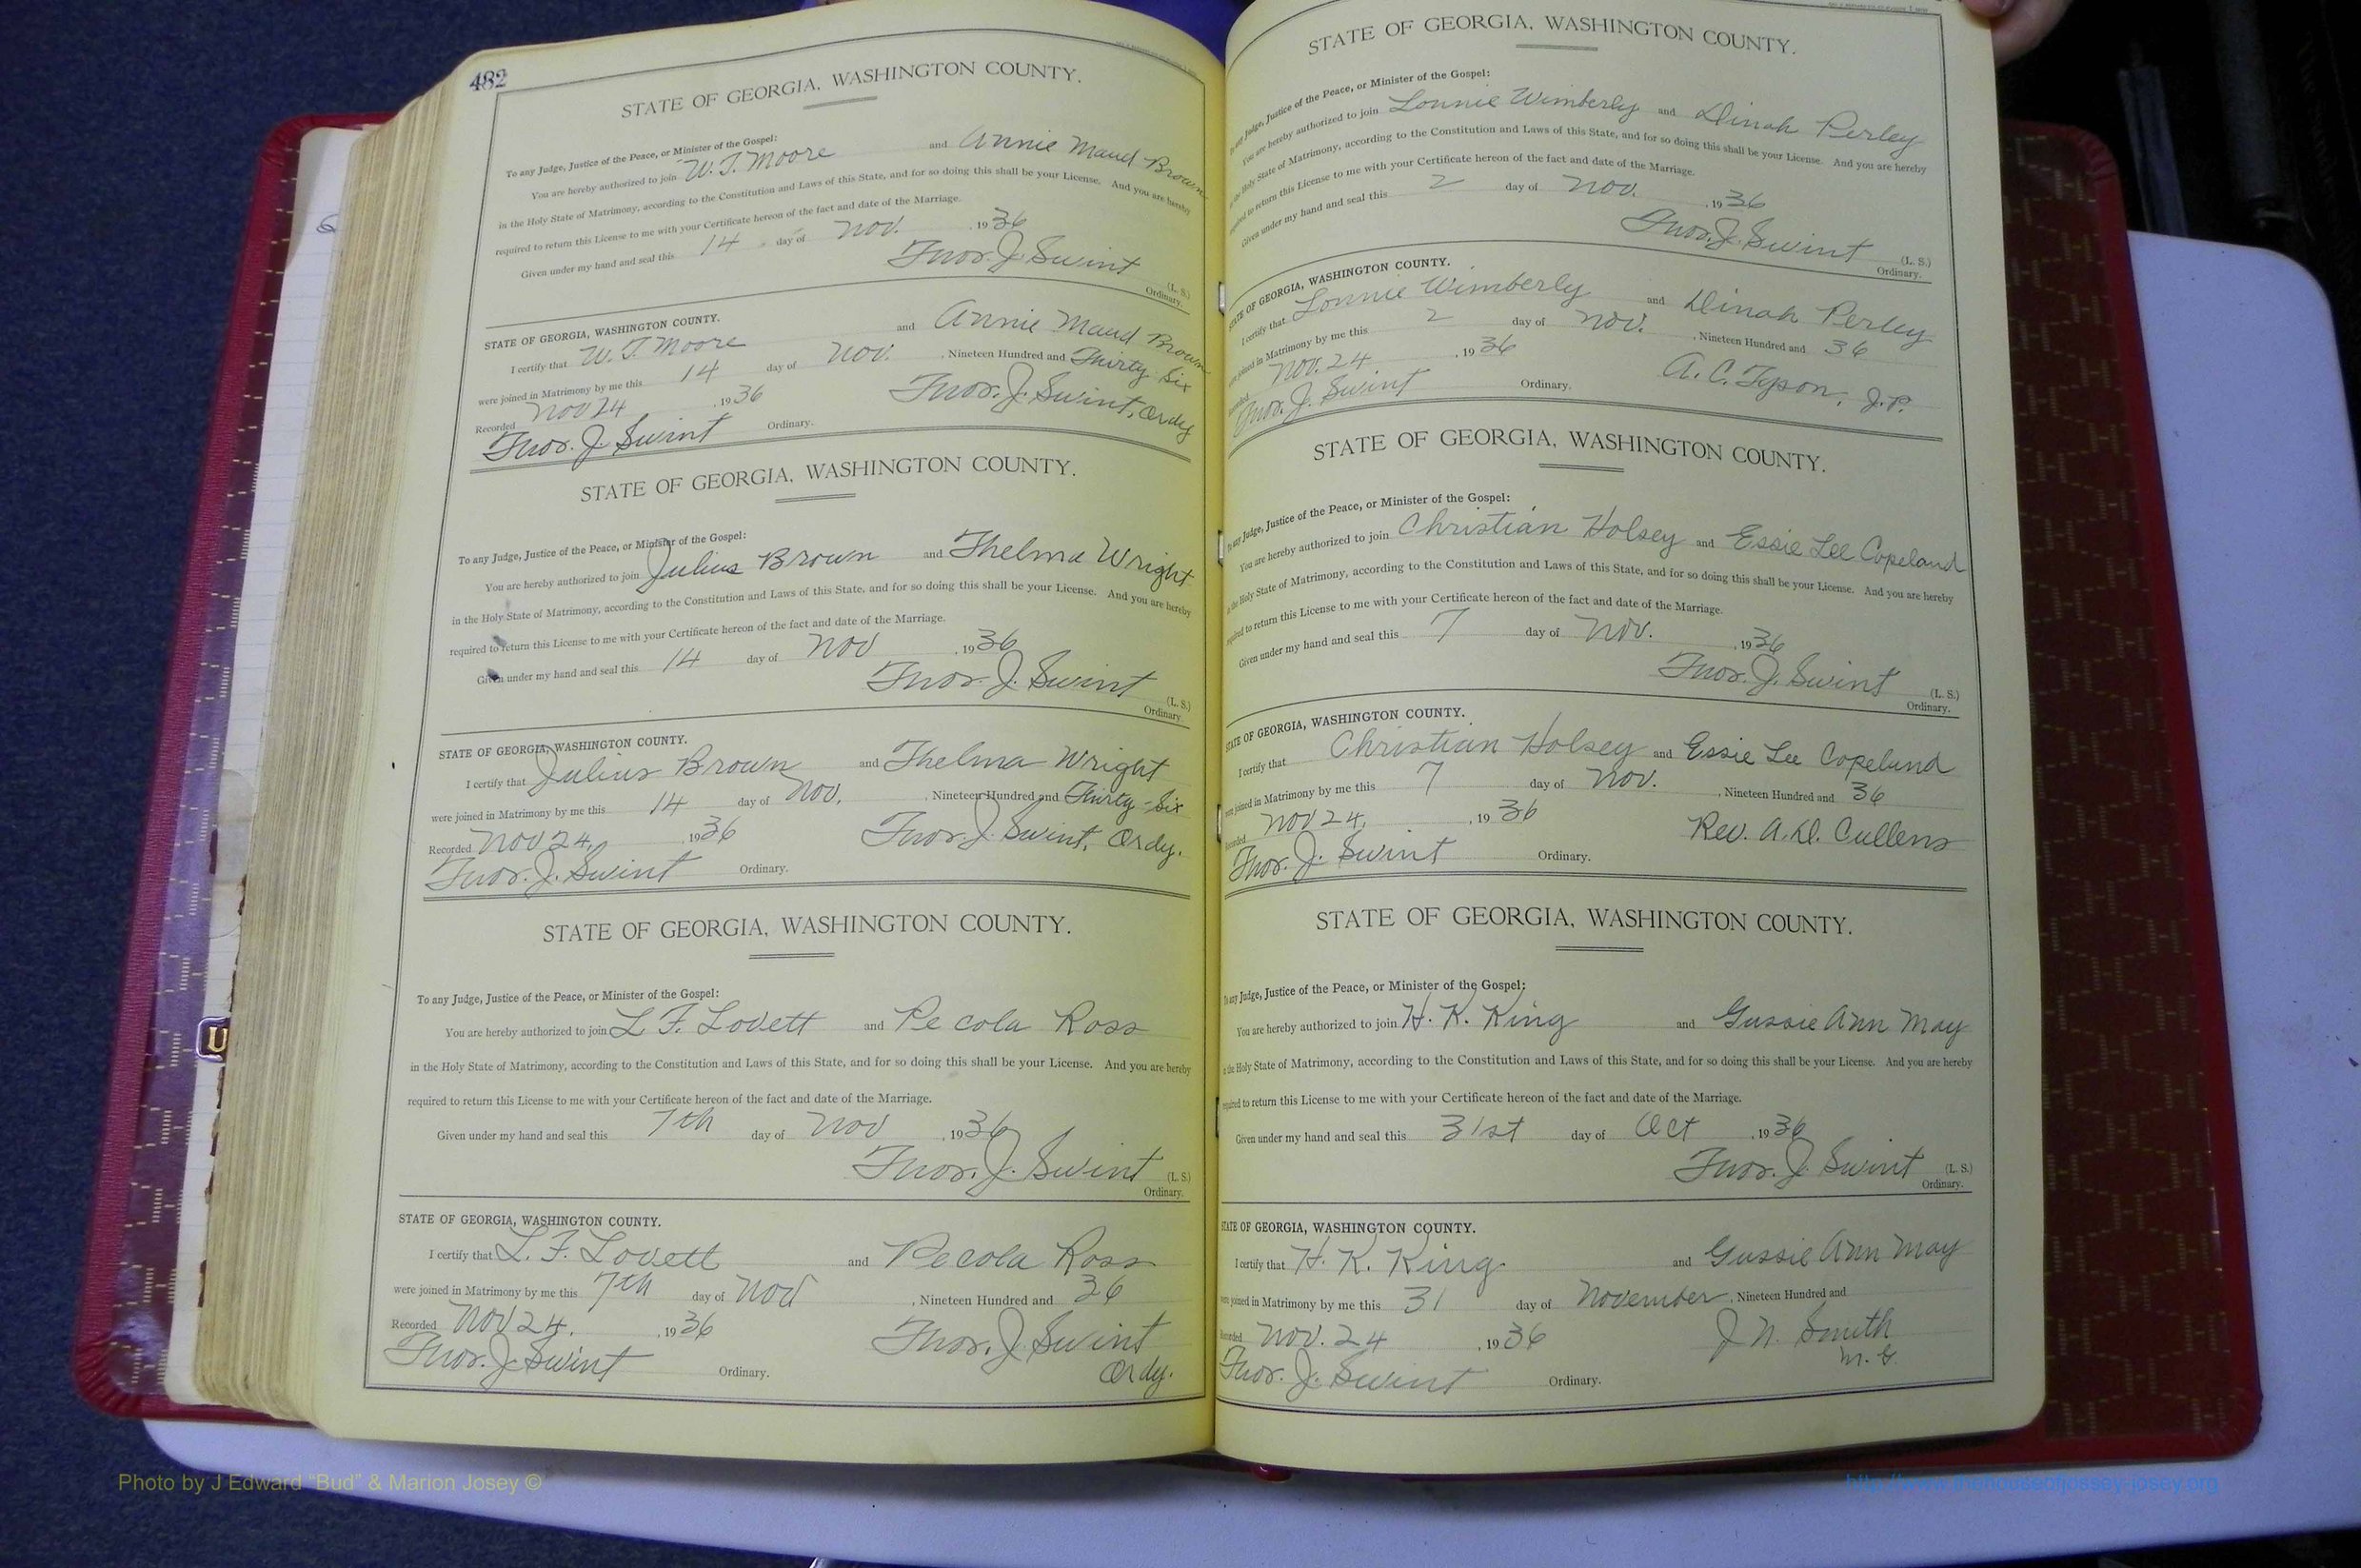 482
STATE OF GEORGIA, WASHINGTON COUNTY.
To any Judge, Justice of the Peace, or Minister of the Gospel:
You are hereby authorized to join W. T. Moore and Annie Maud Brown
in the Holy State of Matrimony, according to the Constitution and Laws of this State, and for so doing this shall be your License. And you are hereby
required to return this License to me with your Certificate hereon of the fact and date of the Marriage.
Given under my hand and seal this 14 day of Nov. , 1936
Thos. J. Swint (L. S.)
Ordinary.
STATE OF GEORGIA, WASHINGTON COUNTY.
I certify that W. T. Moore and Annie Maud Brown
were joined in Matrimony by me this 14 day of Nov. , Nineteen Hundred and Thirty Six
Recorded Nov 24 , 1936 Thos. J. Swint, Ordy
Thos. J. Swint Ordinary.
STATE OF GEORGIA, WASHINGTON COUNTY.
To any Judge, Justice of the Peace, or Minister of the Gospel:
You are hereby authorized to join Julius Brown and Thelma Wright
in the Holy State of Matrimony, according to the Constitution and Laws of this State, and for so doing this shall be your License. And you are hereby
required to return this License to me with your Certificate hereon of the fact and date of the Marriage.
Given under my hand and seal this 14 day of Nov , 1936
Thos. J. Swint (L. S.)
Ordinary.
STATE OF GEORGIA, WASHINGTON COUNTY.
I certify that Julius Brown and Thelma Wright
were joined in Matrimony by me this 14 day of Nov. , Nineteen Hundred and Thirty-Six
Recorded Nov 24, 1936 Thos. J. Swint, Ordy.
Thos. J. Swint Ordinary.
STATE OF GEORGIA, WASHINGTON COUNTY.
To any Judge, Justice of the Peace, or Minister of the Gospel:
You are hereby authorized to join L. F. Lovett and Pecola Ross
in the Holy State of Matrimony, according to the Constitution and Laws of this State, and for so doing this shall be your License. And you are hereby
required to return this License to me with your Certificate hereon of the fact and date of the Marriage.
Given under my hand and seal this 7th day of Nov , 1936
Thos. J. Swint (L. S.)
Ordinary.
STATE OF GEORGIA, WASHINGTON COUNTY.
I certify that L. F. Lovett and Pecola Ross
were joined in Matrimony by me this 7th day of Nov , Nineteen Hundred and 36
Recorded Nov 24. , 1936 Thos. J. Swint
Thos. J. Swint Ordinary. Ordy.
STATE OF GEORGIA, WASHINGTON COUNTY.
To any Judge, Justice of the Peace, or Minister of the Gospel:
You are hereby authorized to join Lonnie Wimberly and Dinah Perley
in the Holy State of Matrimony, according to the Constitution and Laws of this State, and for so doing this shall be your License. And you are hereby
required to return this License to me with your Certificate hereon of the fact and date of the Marriage.
Given under my hand and seal this 2 day of Nov. , 1936
Thos. J. Swint (L. S.)
Ordinary.
STATE OF GEORGIA, WASHINGTON COUNTY.
I certify that Lonnie Wimberly and Dinah Perley
were joined in Matrimony by me this 2 day of Nov. , Nineteen Hundred and 36
Recorded Nov. 24 , 1936 A. C. Tyson, J. P.
Thos. J. Swint Ordinary.
STATE OF GEORGIA, WASHINGTON COUNTY.
To any Judge, Justice of the Peace, or Minister of the Gospel:
You are hereby authorized to join Christian Holsey and Essie Lee Copeland
in the Holy State of Matrimony, according to the Constitution and Laws of this State, and for so doing this shall be your License. And you are hereby
required to return this License to me with your Certificate hereon of the fact and date of the Marriage.
Given under my hand and seal this 7 day of Nov. , 1936
Thos. J. Swint (L. S.)
Ordinary.
STATE OF GEORGIA, WASHINGTON COUNTY.
I certify that Christian Holsey and Essie Lee Copeland
were joined in Matrimony by me this 7 day of Nov. , Nineteen Hundred and 36
Recorded Nov 24, , 1936 Rev. A. D. Cullens
Thos. J. Swint Ordinary.
STATE OF GEORGIA, WASHINGTON COUNTY.
To any Judge, Justice of the Peace, or Minister of the Gospel:
You are hereby authorized to join H. K. King and Gussie Ann May
in the Holy State of Matrimony, according to the Constitution and Laws of this State, and for so doing this shall be your License. And you are hereby
required to return this License to me with your Certificate hereon of the fact and date of the Marriage.
Given under my hand and seal this 31st day of Oct , 1936
Thos. J. Swint (L. S.)
Ordinary.
STATE OF GEORGIA, WASHINGTON COUNTY.
I certify that H. K. King and Gussie Ann May
were joined in Matrimony by me this 31 day of November , Nineteen Hundred and
Recorded Nov. 24 , 1936 J. N. Smith
M. G.
Thos. J. Swint Ordinary.
Photo by J Edward “Bud” & Marion Josey ©
http://www.thehouseofjossey-josey.org